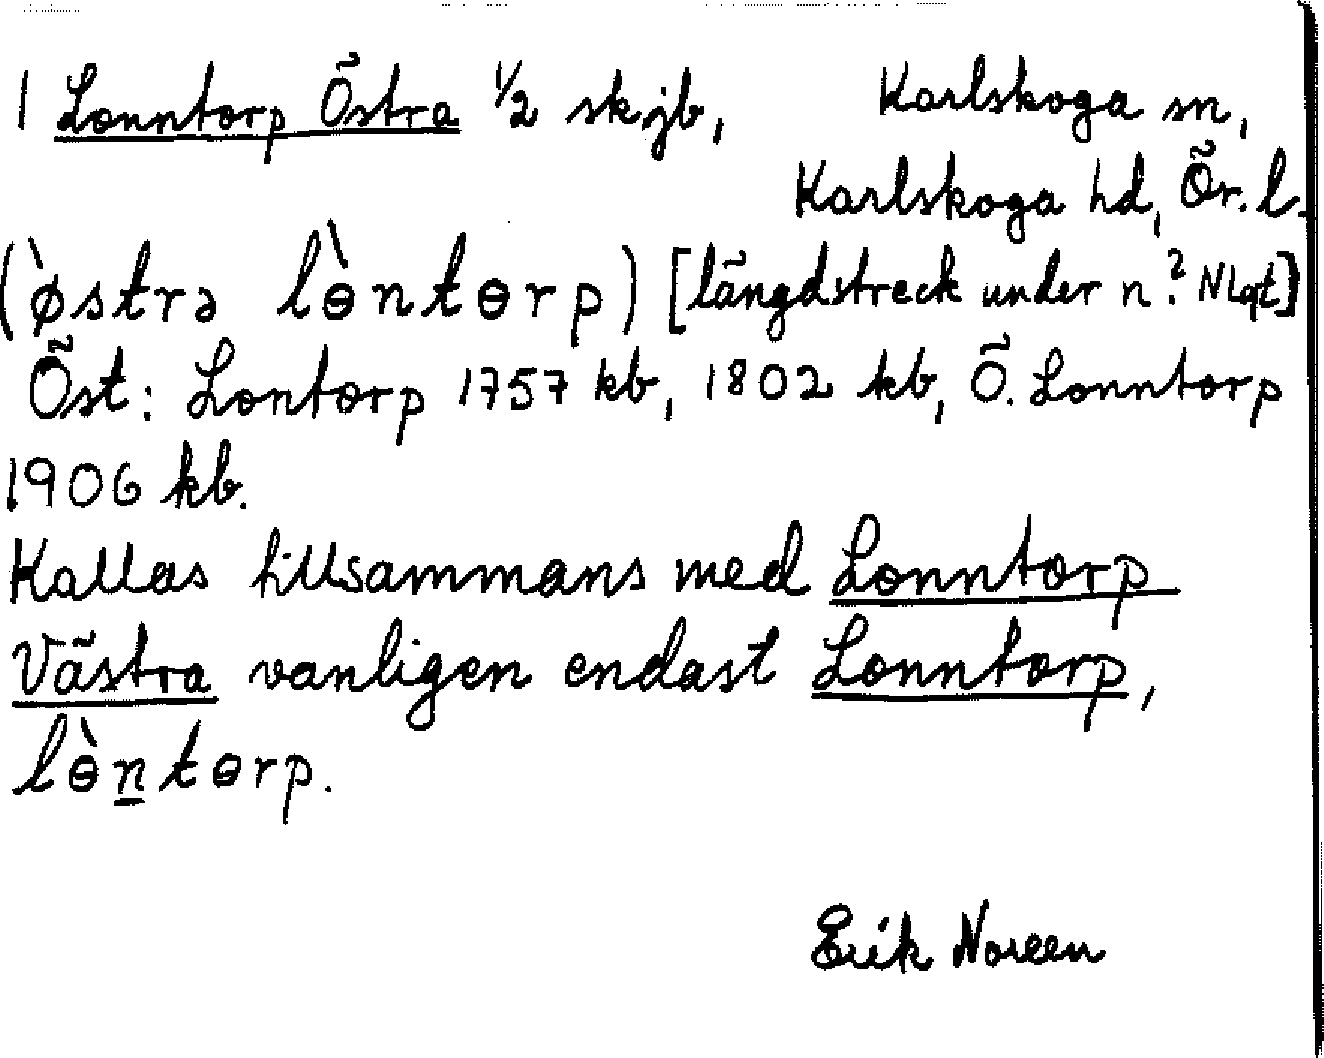 1 Lonntorp Östra 1/2 skjb, Karlskoga sn,
Karlskoga hd, Ör. l.
(ø̀strə lɵ̀ntɵrp) [längdstreck under n.? NLqt]
Öst: Lontorp 1757 kb, 1802 kb, Ö. Lonntorp
1906 kb.
Kallas tillsammans med Lonntorp
Västra vanligen endast Lonntorp,
lɵ̀n̲tɵrp.
Erik Noreen